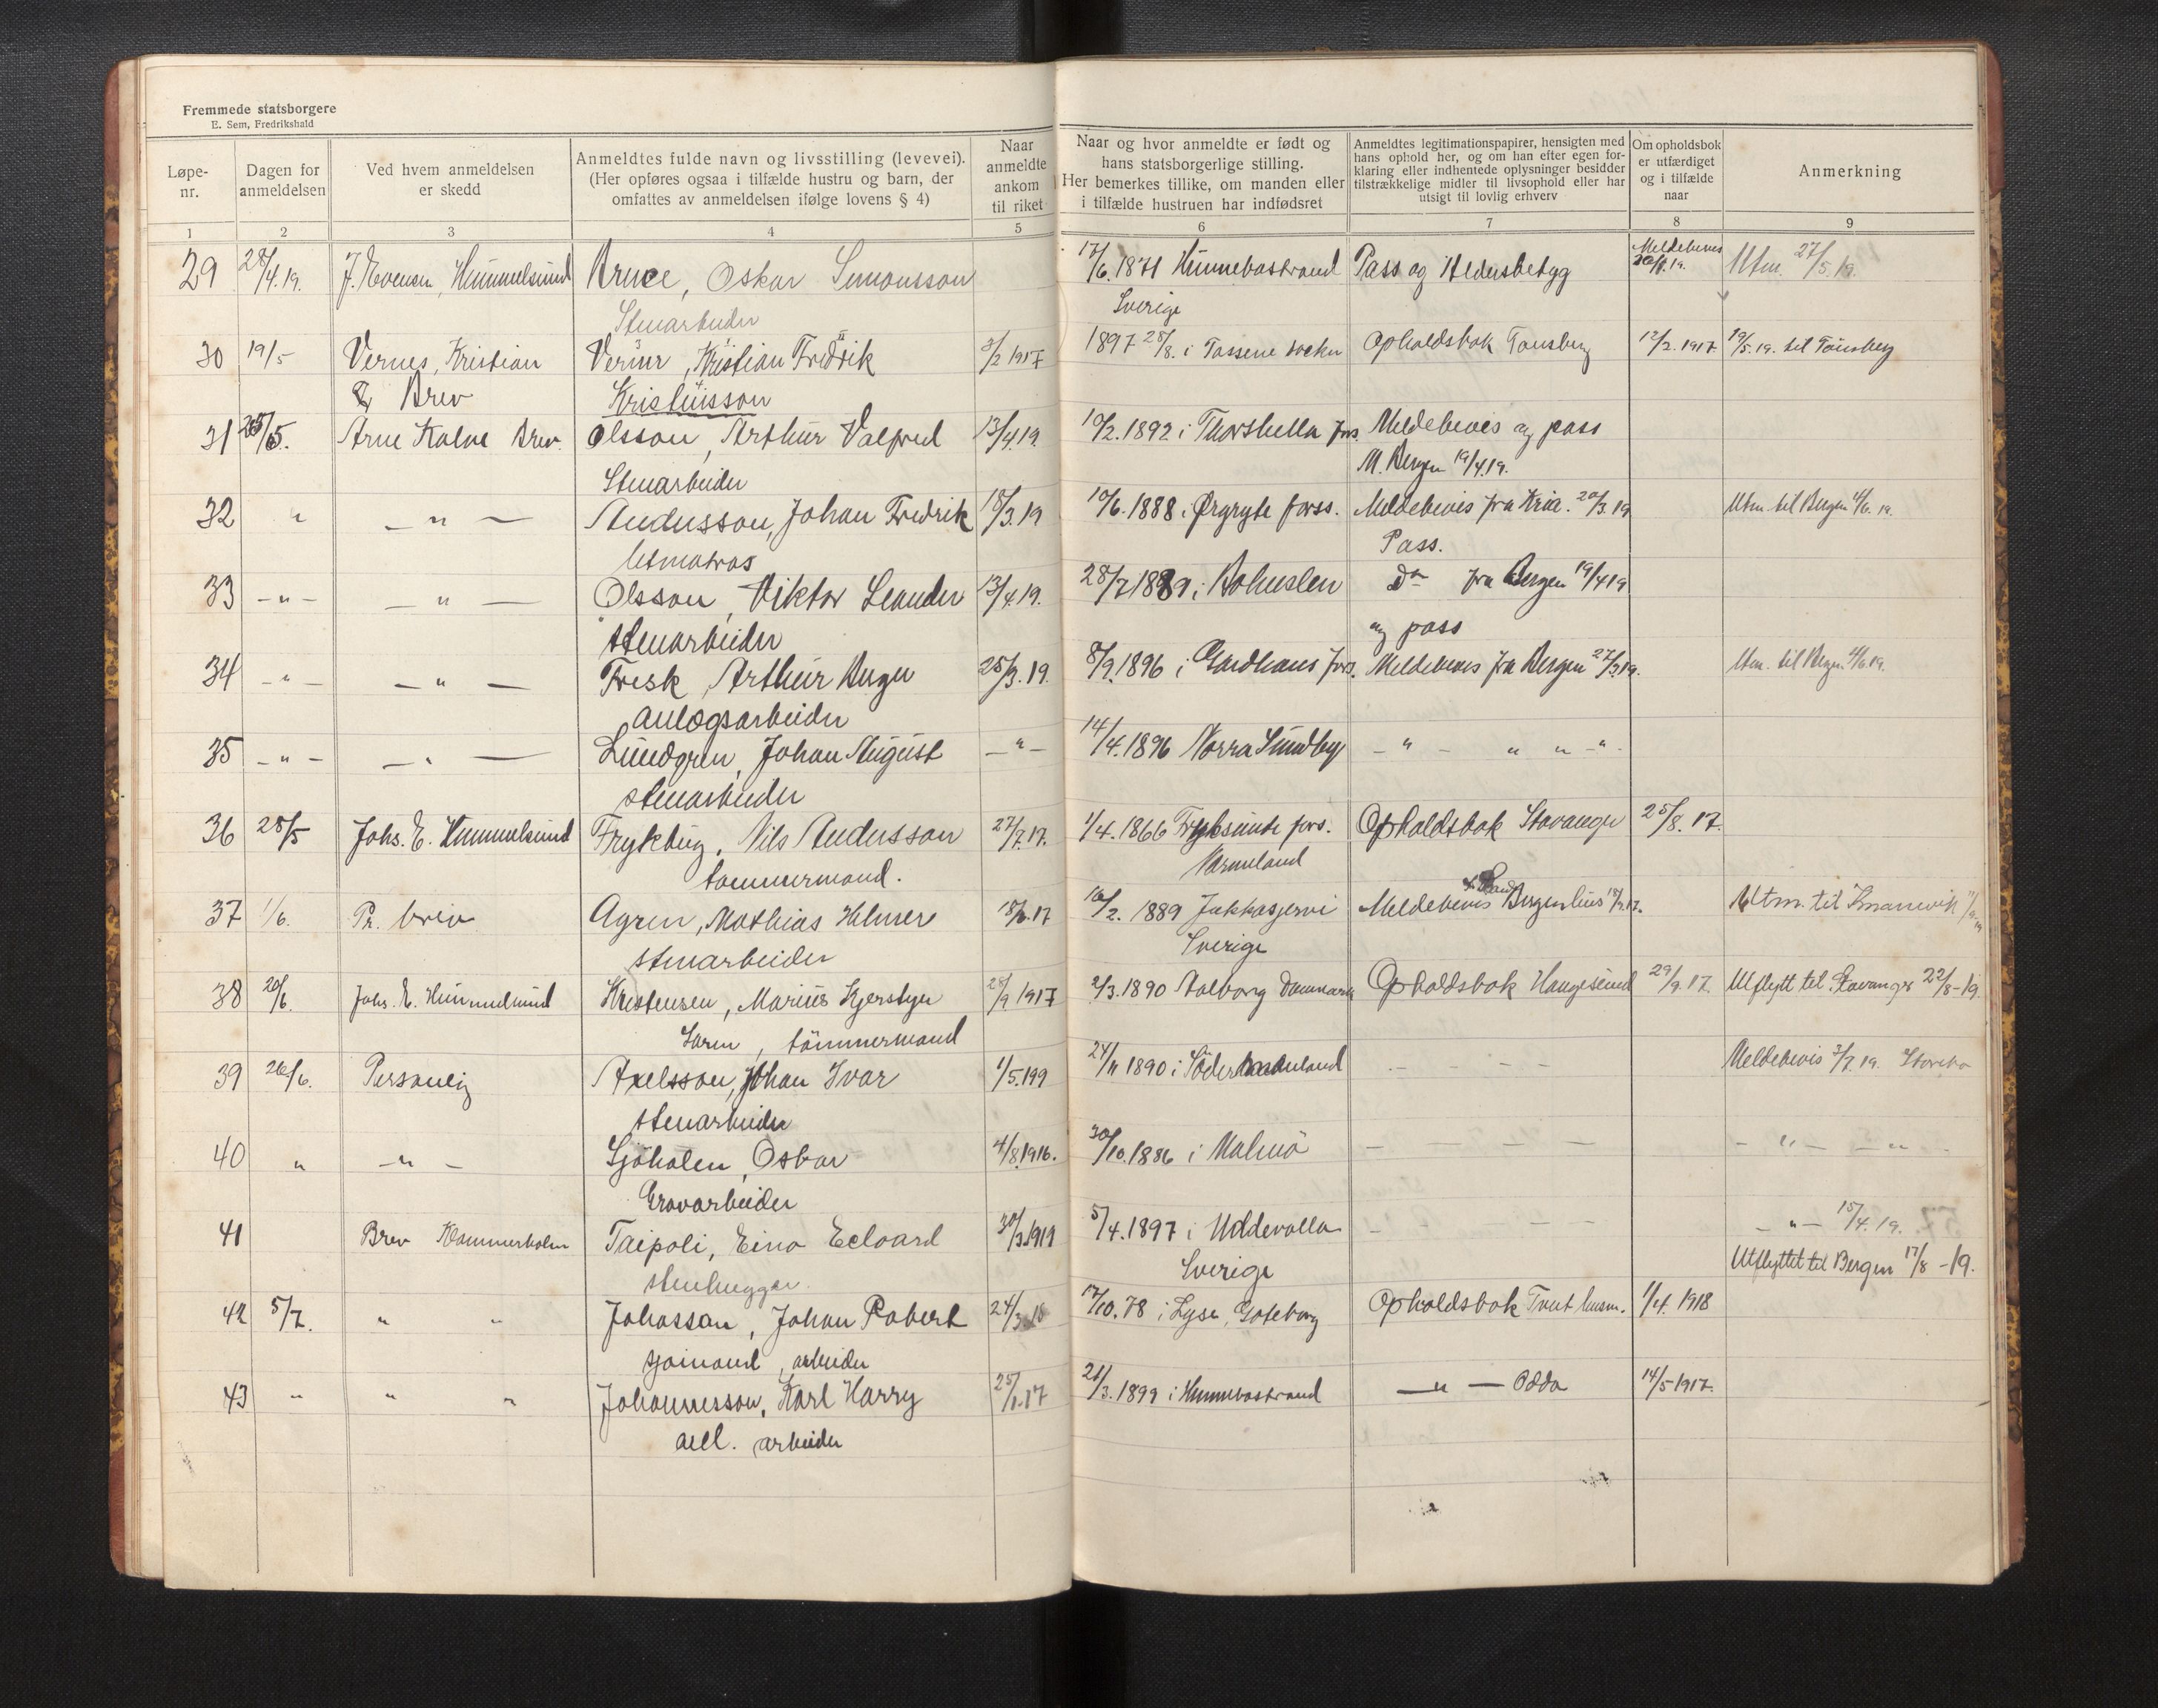 Fremmede statsborgere
E. Sem, Fredrikshald
Løpe-nr.
Dagen for anmeldelsen
Ved hvem anmeldelsen er skedd
Anmeldtes fulde navn og livsstilling (levevei).
(Her opføres ogsaa i tilfælde hustru og barn, der omfattes av anmeldelsen ifølge lovens § 4)
Naar anmeldte ankom til riket
Naar og hvor anmeldte er født og hans statsborgerlige stilling.
Her bemerkes tillike, om manden eller i tilfælde hustruen har indfødsret
Anmeldtes legitimationspapirer, hensigten med hans ophold her, og om han efter egen forklaring eller indhentede oplysninger besidder tilstrækkelige midler til livsophold eller har utsigt til lovlig erhverv
Om opholdsbok er utfærdiget og i tilfælde naar
Anmerkning
1 2 3 4 5 6 7 8 9
29 28/4.19. J. Evensen, Hummelsund Bruce, Oskar Simonsson 17/6.1871 Hunnebostrand Pass og Aldersbetyg Meldebevis Utm. 27/5.19.
Stenarbeider Sverige
30 19/5 Vernes, Kristian Verner, Kristian Fredrik 3/2 1917 1897 28/8. i Tossene socken Opholdsbok Tønsberg 12/2.1917. 19/5.19. til Tønsberg
Brev Kristensson
31 Arne Kalve Brev. Olsson, Arthur Valfred 13/4.19. 10/2.1892 i Thorshella fors. Meldebevis og pass
Stenarbeider M. Bergen 19/4.19.
32 " — " — Andersson, Johan Fredrik 18/3.19 10/6.1888 i Ørgryte forss. Meldebevis fra Kria. 20/3.19 Utm. til Bergen 4/6.19.
letmatros Pass.
33 — " — — " — Olsson, Viktor Leander 13/4.19. 28/7 1889 i Bohuslen Do fra Bergen 19/4 19
stenarbeider og pass
34 — " — — " — Fresk, Arthur Birger 25/3.19. 8/9.1896 i Gardhans fors. Meldebevis fra Bergen 27/3.19. Utm. til Bergen 4/6.19.
anlægsarbeider
35 — " — — " — Lundgren, Johan August — " — 14/4.1896 Norra Sundby — " — " " — " -
stenarbeider
36 28/5 Johs. E. Hummelsund Frykberg, Nils Andersson 27/7.17. 1/4.1866 Fryksunde fors. Opholdsbok Stavanger 25/8.17.
tømmermand. Vermeland
37 1/6. Pr. brev Agren, Mathias Helmer 18/6.17 16/2. 1889 Jukkasjervi Meldebevis S. Bergenhus Utm. til
stenarbeider Sverige
38 20/6. Johs. E. Hummelsund Kristensen, Marius Kjerstyn 28/9 1917 2/3.1890 Aalborg Danmark Opholdsbok Haugesund 29/9.17. Utflytt til Stavanger 22/8-19.
Søren, tømmermand
39 26/6. Personlig Axelsson, Johan Ivar 1/5.199 24/11 1890 i Södermanland — — — Meldebevis 3/7.19. Storebø
stenarbeider
40 " — " — Sjøholm, Oskar 4/8.1916. 30/10.1886 i Malmö — — — — — " — — "
Grovarbeider
41 Brev Hammerholm Taipoli, Eino Edvard 30/3.1919 5/4.1897 i Uddevalla — — — — " — 15/4.19.
stenhugger Sverige Utflyttet til Bergen 17/8 -19.
42 5/7. " " Johansson, Johan Robert 24/3.18 17/10.78 i Lyse, Goteborg Opholdsbok 1/4. 1918
sjømand, arbeider
43 " " " Johannesson, Karl Harry 25/1.17 21/3.1899 i Hunnebostrand — " — Odda 14/5 1917.
arbeider